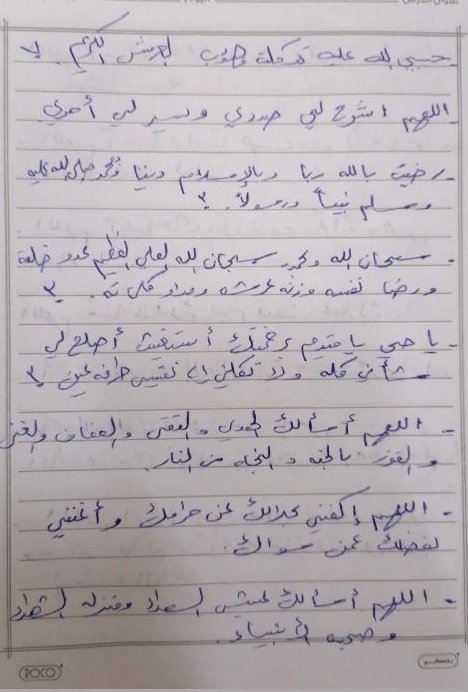 - حسبي الله عليه توكلت وهو رب العرش الكريم. ٧
- اللهم اشرح لي صدري ويسر لي أمري
- رضيت بالله ربا وبالإسلام دينا وبمحمد صلى الله عليه
وسلم نبياً ورسولاً. ٣
- سبحان الله وبحمده سبحان الله العلي العظيم عدد خلقه
ورضا نفسه وزنة عرشه ومداد كلماته. ٣
- يا حي يا قيوم برحمتك أستغيث أصلح لي
شأني كله ولا تكلني إلى نفسي طرفه عين ٣
- اللهم أسألك الهدى والتقى والعفاف والغنى
والفوز بالجنه والنجاه من النار.
- اللهم إكفني بحلالك عن حرامك وأغنني
بفضلك عمن سواك.
- اللهم أسألك عيش السعداء ومنزله الشهداء
وصحبه الأنبياء.
ROCO
روكو